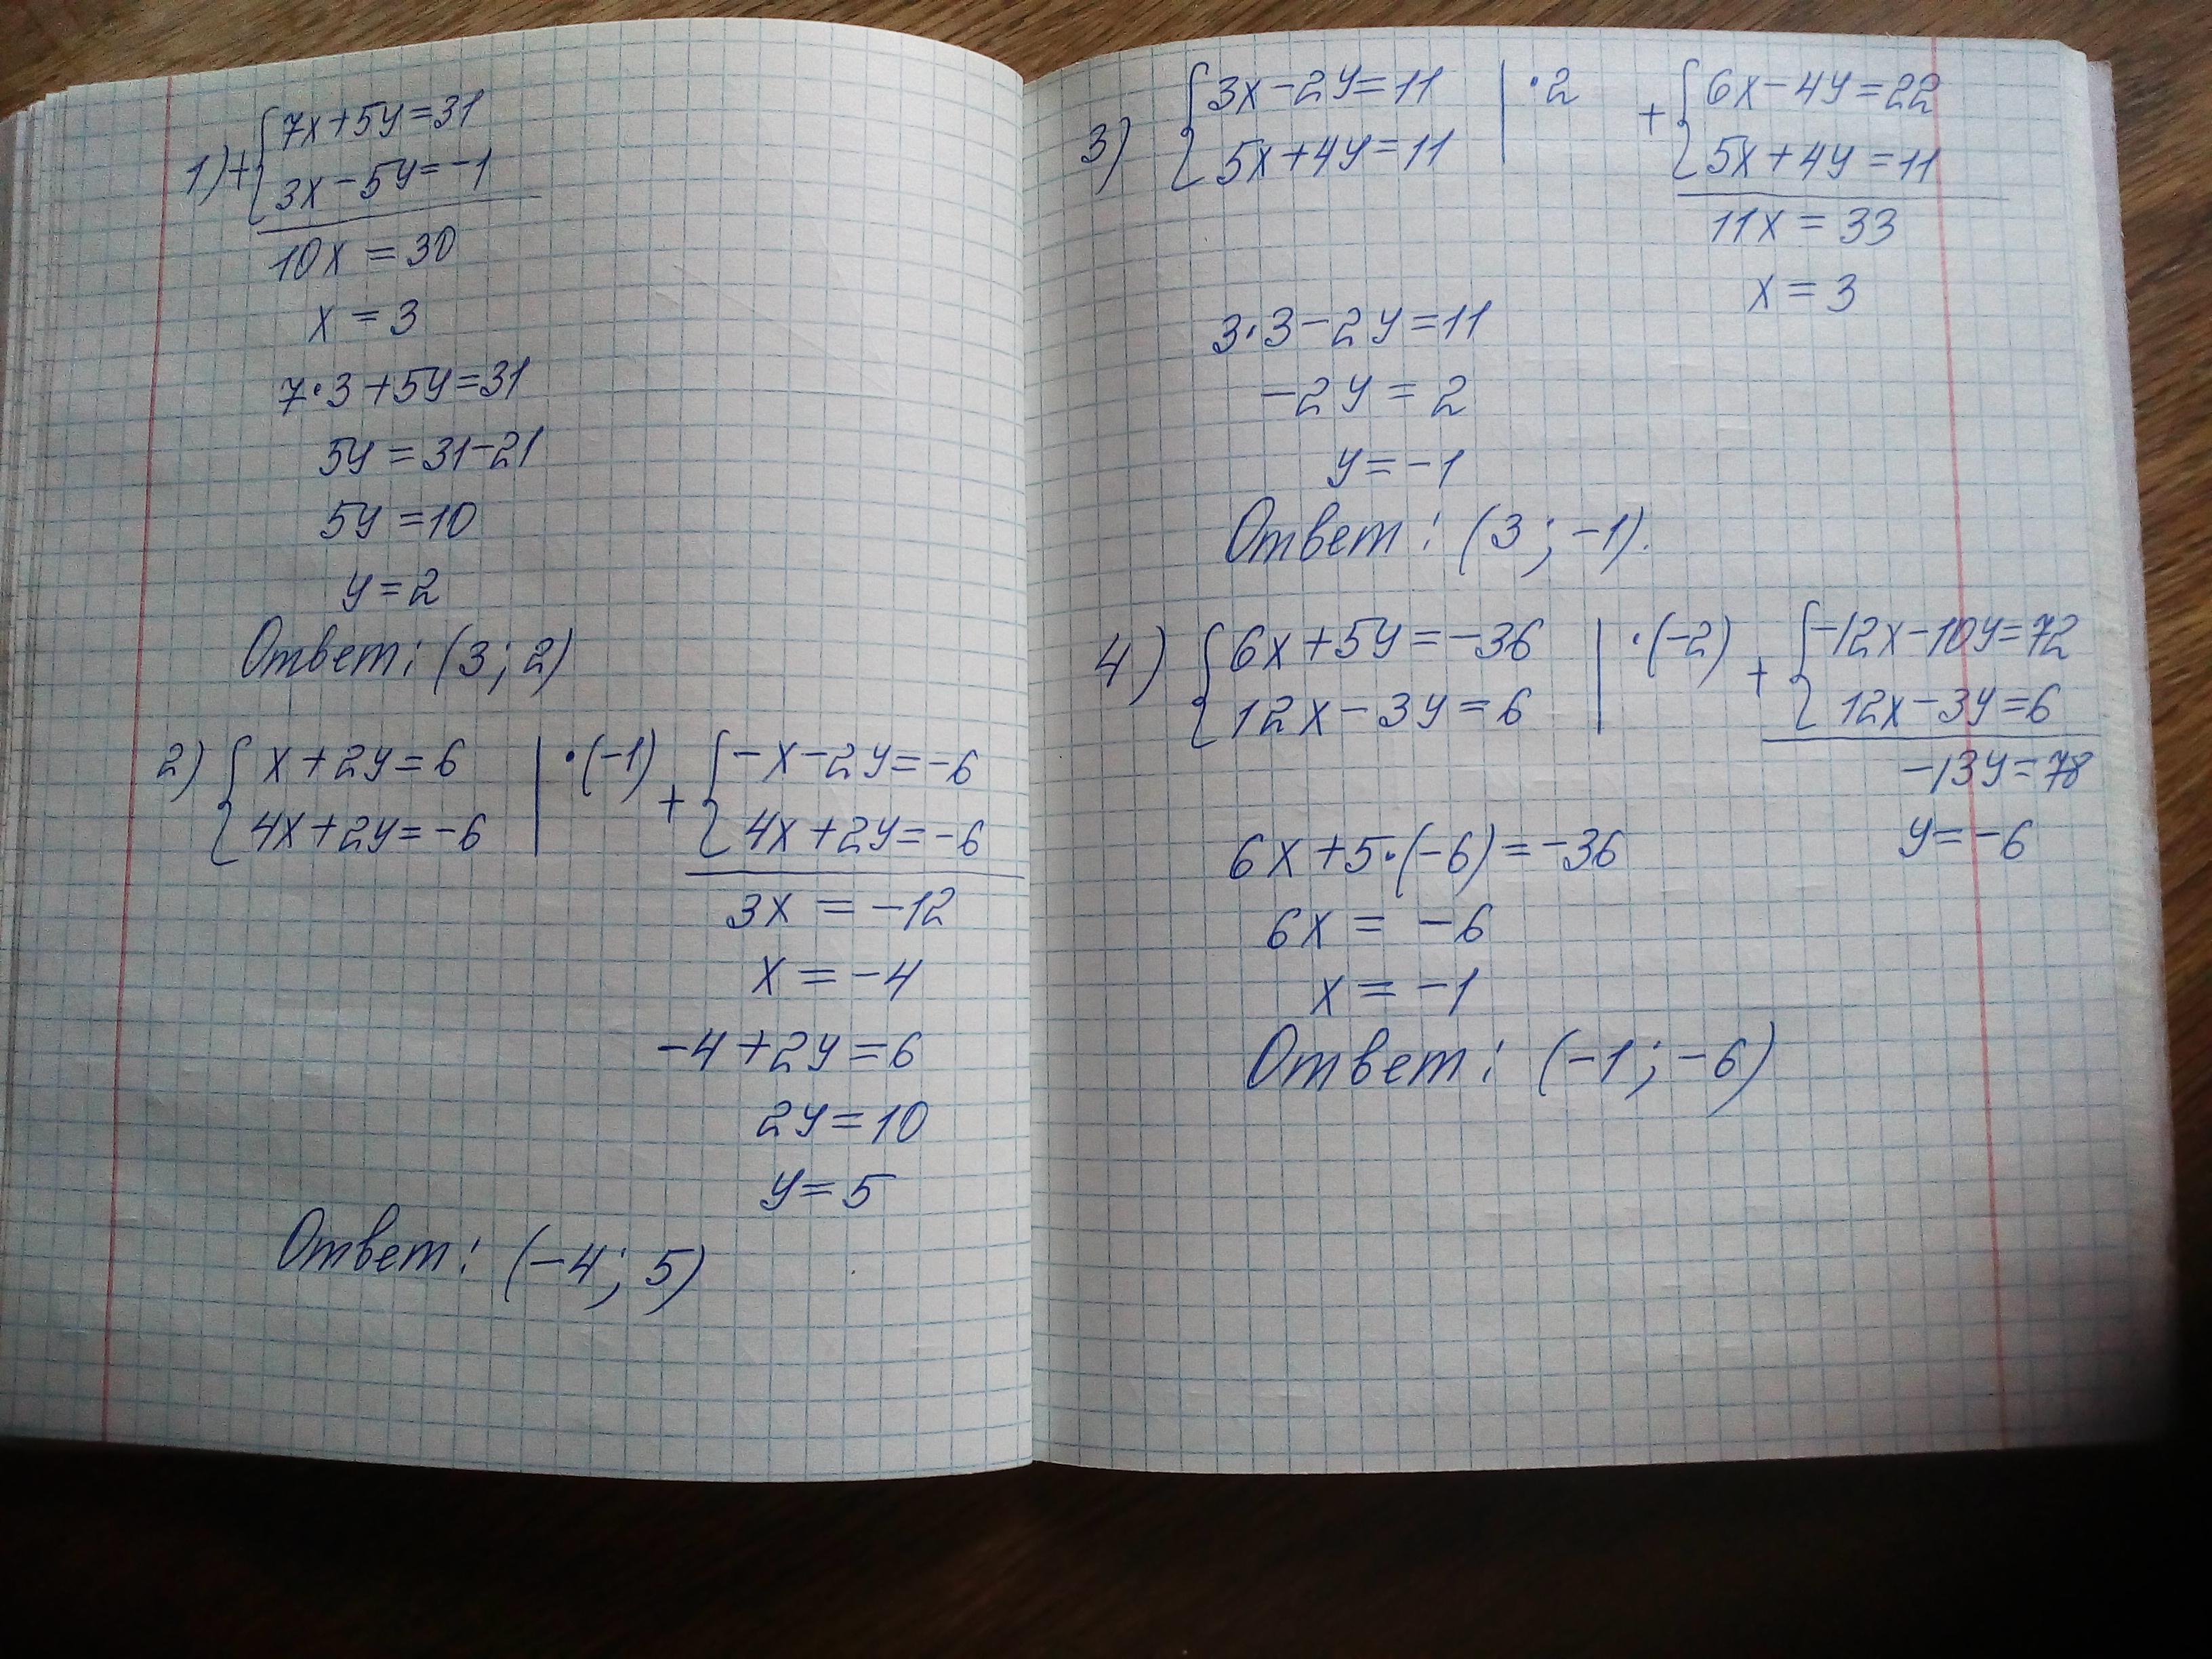 1) + { 7x+5y=31
3x-5y=-1
10x = 30
x = 3
7·3+5y=31
5y = 31-21
5y = 10
y = 2
Ответ: (3; 2)
2) { x+2y=6 | ·(-1) + { -x-2y=-6
4x+2y=-6 4x+2y=-6
3x = -12
x = -4
-4+2y=6
2y=10
y=5
Ответ: (-4; 5)
3) { 3x-2y=11 | ·2 + { 6x-4y=22
5x+4y=11 5x+4y=11
11x = 33
x = 3
3·3-2y=11
-2y = 2
y = -1
Ответ: (3; -1).
4) { 6x+5y=-36 | ·(-2) + { -12x-10y=72
12x-3y=6 12x-3y=6
-13y=78
y=-6
6x+5·(-6)=-36
6x = -6
x = -1
Ответ: (-1; -6)